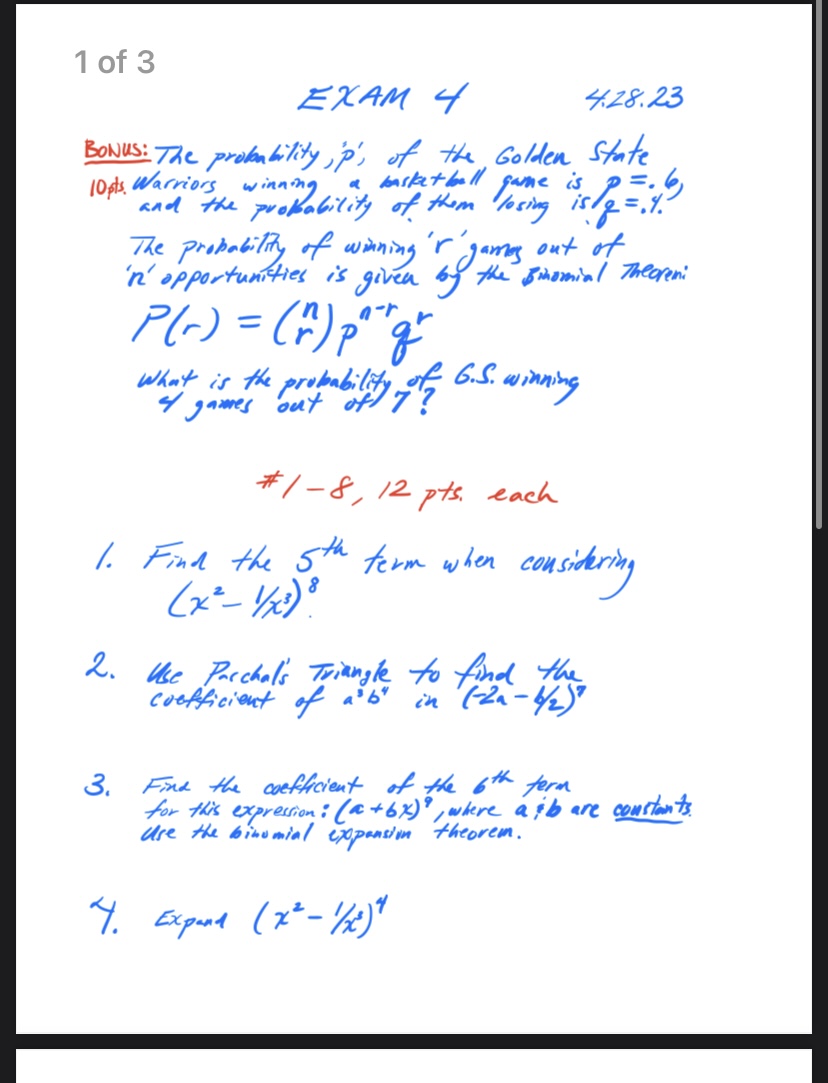 1 of 3
EXAM 4 4.28.23
BONUS: The probability, 'p', of the Golden State
10pts. Warriors winning a basketball game is p = .6,
and the probability of them losing is q = .4.
The probability of winning 'r' games out of
'n' opportunities is given by the Binomial Theorem:
P(r) = (n r) p^n-r q^r
What is the probability of G.S. winning
4 games out of 7?
#1-8, 12 pts. each
1. Find the 5th term when considering
(x² - 1/x³)⁸.
2. Use Paschal's Triangle to find the
coefficient of a³b⁴ in (-2a - b/2)⁷
3. Find the coefficient of the 6th term
for this expression: (a + bx)⁹, where a & b are constants.
Use the binomial expansion theorem.
4. Expand (x² - 1/x³)⁴